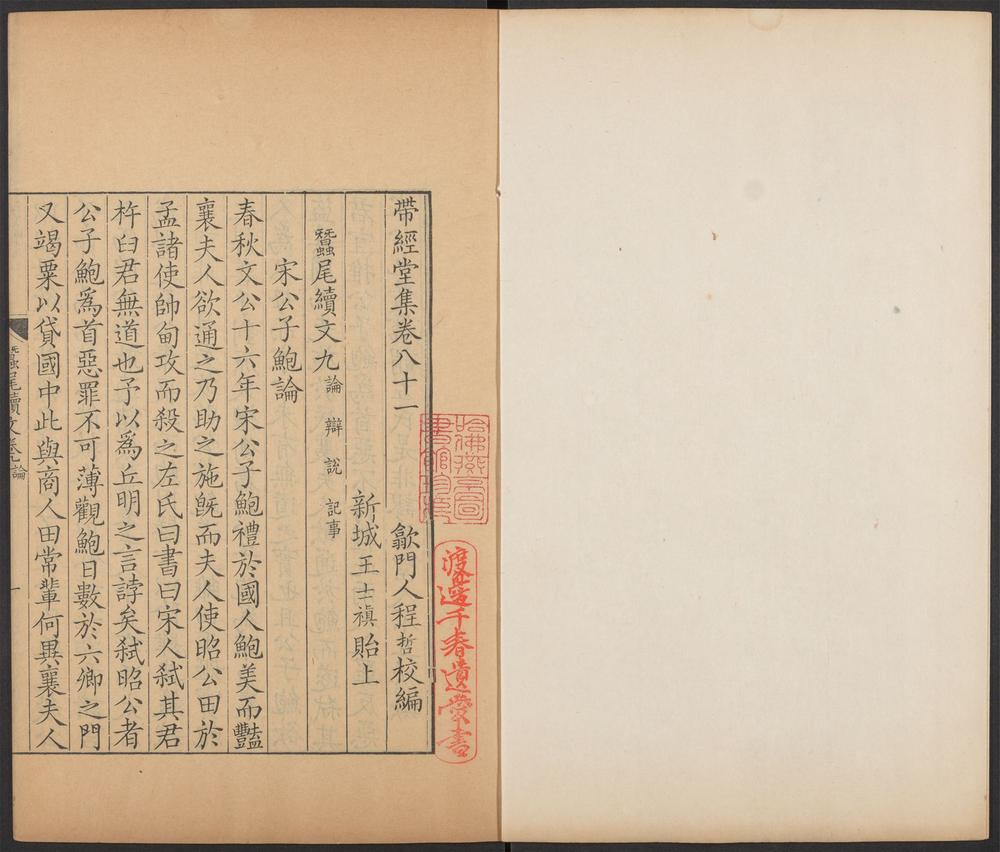 帶經堂集卷八十一
歙門人程哲校編
新城王士禛貽上
蠶尾續文九 論 辯 說 記事
宋公子鮑論
春秋文公十六年宋公子鮑禮於國人鮑美而豔
襄夫人欲通之乃助之施旣而夫人使昭公田於
孟諸使帥甸攻而殺之左氏曰書曰宋人弒其君
杵臼君無道也予以爲丘明之言誖矣弒昭公者
公子鮑爲首惡罪不可薄觀鮑日數於六卿之門
又竭粟以貸國中此與商人田常輩何異襄夫人
蠶尾續文卷九 論
一
哈佛燕京圖書館珍藏
渡邊千春遺愛書